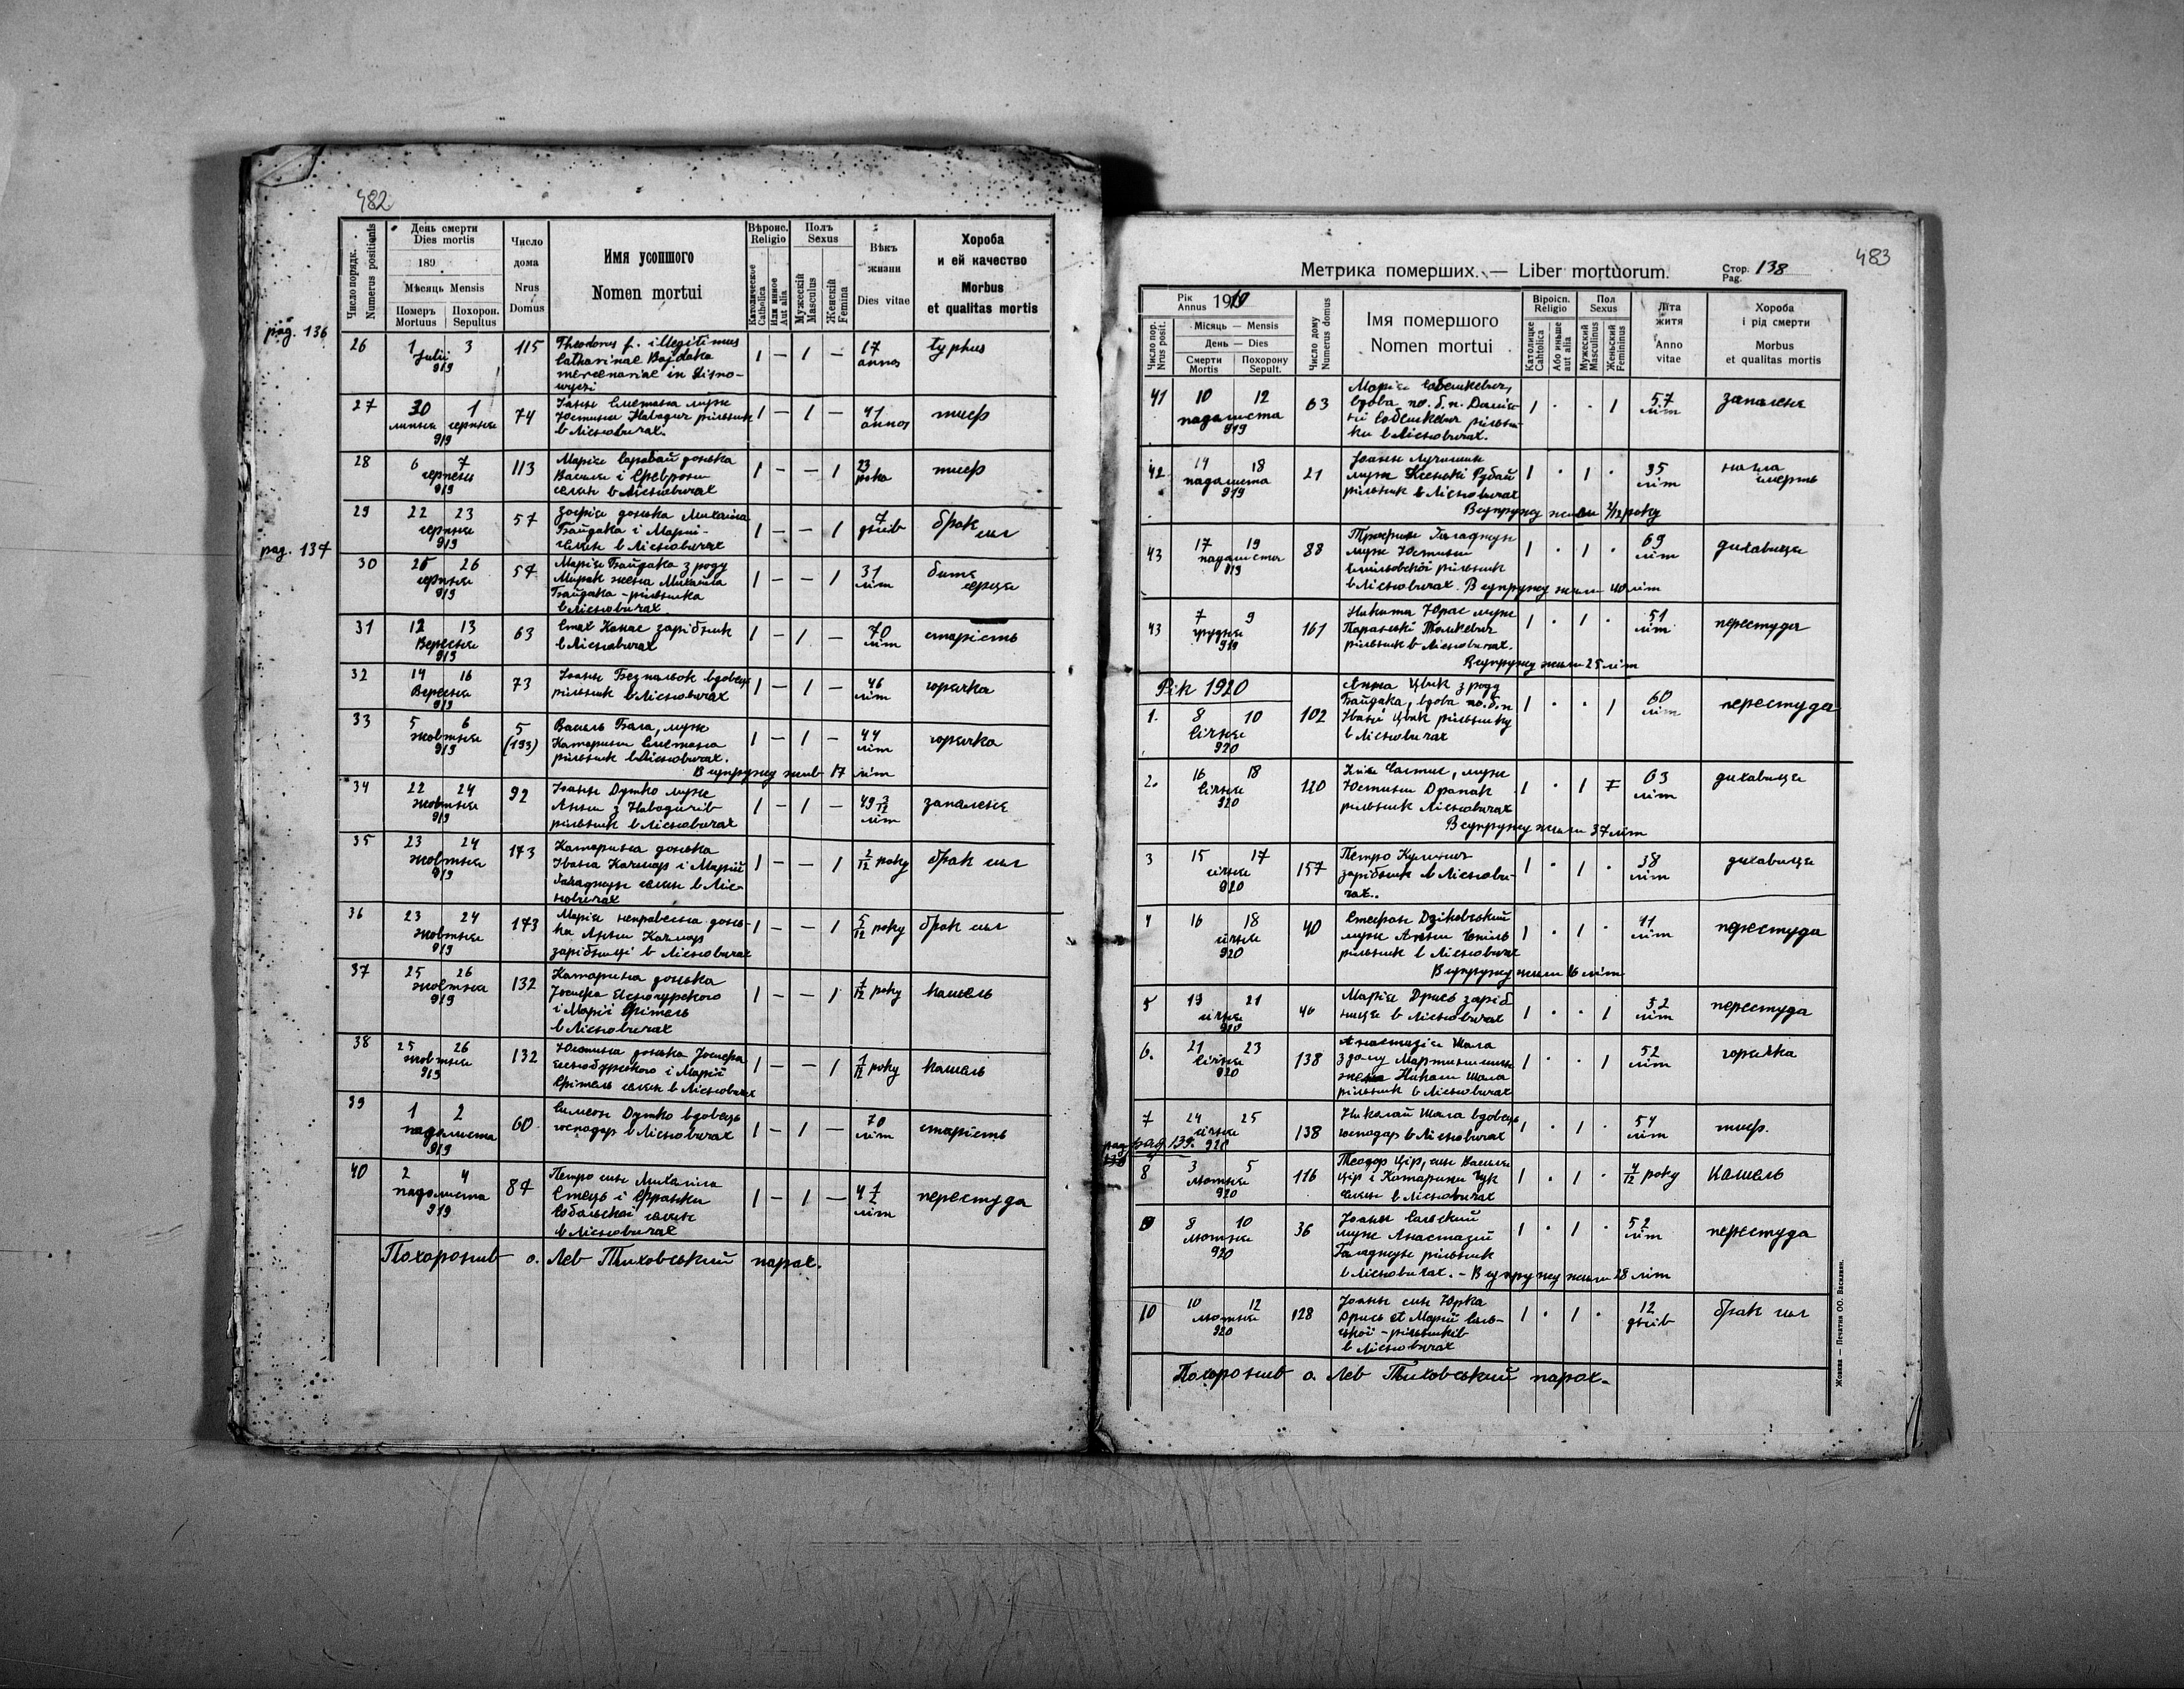 482
Число порядк.
Numerus positionis
День смерти
Dies mortis
189
Мѣсяць Mensis
Померъ
Mortuus
Похорон.
Sepultus
Число
дома
Nrus
Domus
Имя усопшого
Nomen mortui
Вѣроис.
Religio
Католическое
Catholica
Или иное
Aut alia
Полъ
Sexus
Мужескій
Masculus
Женскій
Femina
Вѣкъ
жизни
Dies vitae
Хороба
и ей качество
Morbus
et qualitas mortis
pag. 136
26 1 3 115 Theodorus f. illegitimus 1 — 1 — 17 typhus
Julij Catharinae Bajdaka annos
919 mercenariae in Lisno-
wyczi
27 30 1 74 Іоанн Сметана муж 1 — 1 — 41 тиф
липня серпня Юстини Наводич рільник annos
919 в Лісновичах.
28 6 7 113 Марія Саравай донька 1 — — 1 23 тиф
серпень Василя і Євфрозини рока
919 селян в Лісновичах
29 22 23 57 Зофія донька Михаїла 1 — — 1 7 брак
серпня Байдака і Марії днів сил
919 селян в Лісновичах
pag. 137
30 25 26 57 Марія Байдака з роду 1 — — 1 31 битє
серпня Мирак жена Михаїла літ серця
919 Байдака - рільника
в Лісновичах
31 12 13 63 Стах Канас зарібник 1 — 1 — 70 старість
Вересня в Лісновичах літ
919
32 14 16 73 Іоанн Безпальок вдовець 1 — 1 — 46 горячка
Вересня рільник в Лісновичах літ
919
33 5 6 5 Василь Бала, муж 1 — 1 — 44 горячка
жовтня (193) Катарини Сметана літ
919 рільник в Лісновичах.
В супружу жив 17 літ
34 22 24 92 Іоанн Дутко муж 1 — 1 — 49 3/12 запаленя
жовтня Анни з Наводичів літ
919 рільник в Лісновичах
35 23 24 173 Катарина донька 1 — — 1 2/12 року брак сил
жовтня Івана Качмар і Марії
919 Галаджун селян в Ліс-
новичах
36 23 24 173 Марія неправесна донь- 1 — — 1 5/12 року брак сил
жовтня ка Анни Качмар
919 зарібниці в Лісновичах
37 25 26 132 Катарина донька 1 — — 1 1/12 року кашель
жовтня Йосифа
919 і Марії
в Лісновичах
38 25 26 132 Юстина донька Йосифа 1 — — 1 1/12 року кашель
жовтня і Марії
919 селян в Лісновичах
39 1 2 60 Симеон Дутко вдовець 1 — 1 — 70 старість
падолиста господар в Лісновичах літ
919
40 2 4 87 Петро син Михаїла 1 — 1 — 4 1/2 перестуда
падолиста Стець і Франки літ
919 Собальскої селян
в Лісновичах
Похоронив о. Лев Тиховський парох.
483
Метрика померших. — Liber mortuorum.
Стор.
Pag. 138
Число пор.
Nrus posit.
Рік
Annus 1919
Місяць — Mensis
День — Dies
Смерти
Mortis
Похорону
Sepult.
Число дому
Numerus domus
Імя помершого
Nomen mortui
Віроісп.
Religio
Католицке
Cahtolica
Або иньше
aut alia
Пол
Sexus
Мужеский
Masculinus
Женьский
Femininus
Літа
житя
Anno
vitae
Хороба
і рід смерти
Morbus
et qualitas mortis
41 10 12 63 Марія Собешкевич, 1 . . 1 57 запаленя
падолиста вдова по. б. п. літ
919 Собешкевич рільни-
ки в Лісновичах.
42 14 18 21 Іоанн Лучишин 1 . 1 . 35 нагла
падолиста муж Ксеньки Рубай літ смерть
919 рільник в Лісновичах
В супружу жили /12 року
43 17 19 88 Галаджун 1 . 1 . 69 дихавиця
падолиста муж Юстини літ
919 рільник
в Лісновичах. В супружу жили 40 літ
43 7 9 161 Никита Юрас муж 1 . 1 . 51 перестуда
грудня Параньки Томкевич літ
919 рільник в Лісновичах.
В супружу жили 25 літ
Рік 1920
1. 8 10 102 Анна Цвик з роду 1 . . 1 60 перестуда
Січня Байдака, вдова по. б. п. літ
920 Івані Цвик рільнику
в Лісновичах
2. 16 18 120 муж 1 . 1 63 дихавиця
Січня Юстини Драпак літ
920 рільник Лісновичах
В супружу жили 37 літ
3 15 17 157 Петро Кулинич 1 . 1 . 38 дихавиця
січня зарібник в Ліснови- літ
920 чах..
4 16 18 40 Стефан Дзіковський 1 . 1 . 41 перестуда
січня муж Анни літ
920 рільник в Лісновичах
В супружу жили 16 літ
5 19 21 46 Марія Дрись заріб 1 . . 1 32 перестуда
січня ниця в Лісновичах літ
920
6. 21 23 138 Анастазія Шала 1 . . 1 52 горячка
Січня з дому Мартинишин літ
920 жена Николи Шала
рільник в Лісновичах
7 24 25 138 Николай Шала вдовець 1 . 1 . 54 тиф.
січня господар в Лісновичах літ
920
pag 139.
8 3 5 116 Теодор Цір, син Василя 1 . 1 . 4/12 року Кашель
лютня Цір і Катарини Чук
920 селян в Лісновичах
9 8 10 36 Іоанн Сальский 1 . 1 . 52 перестуда
лютня муж Анастазії літ
920 Галаджун рільник
в Лісновичах. - В супружу жили 28 літ
10 10 12 128 Іоанн син Юрка 1 . 1 . 12 брак сил
лютня Дрись et Марії Саль- днів
920 ської - рільників
в Лісновичах
Похоронив о. Лев Тиховський парох.
Жовква — Печатня ОО. Василиян.